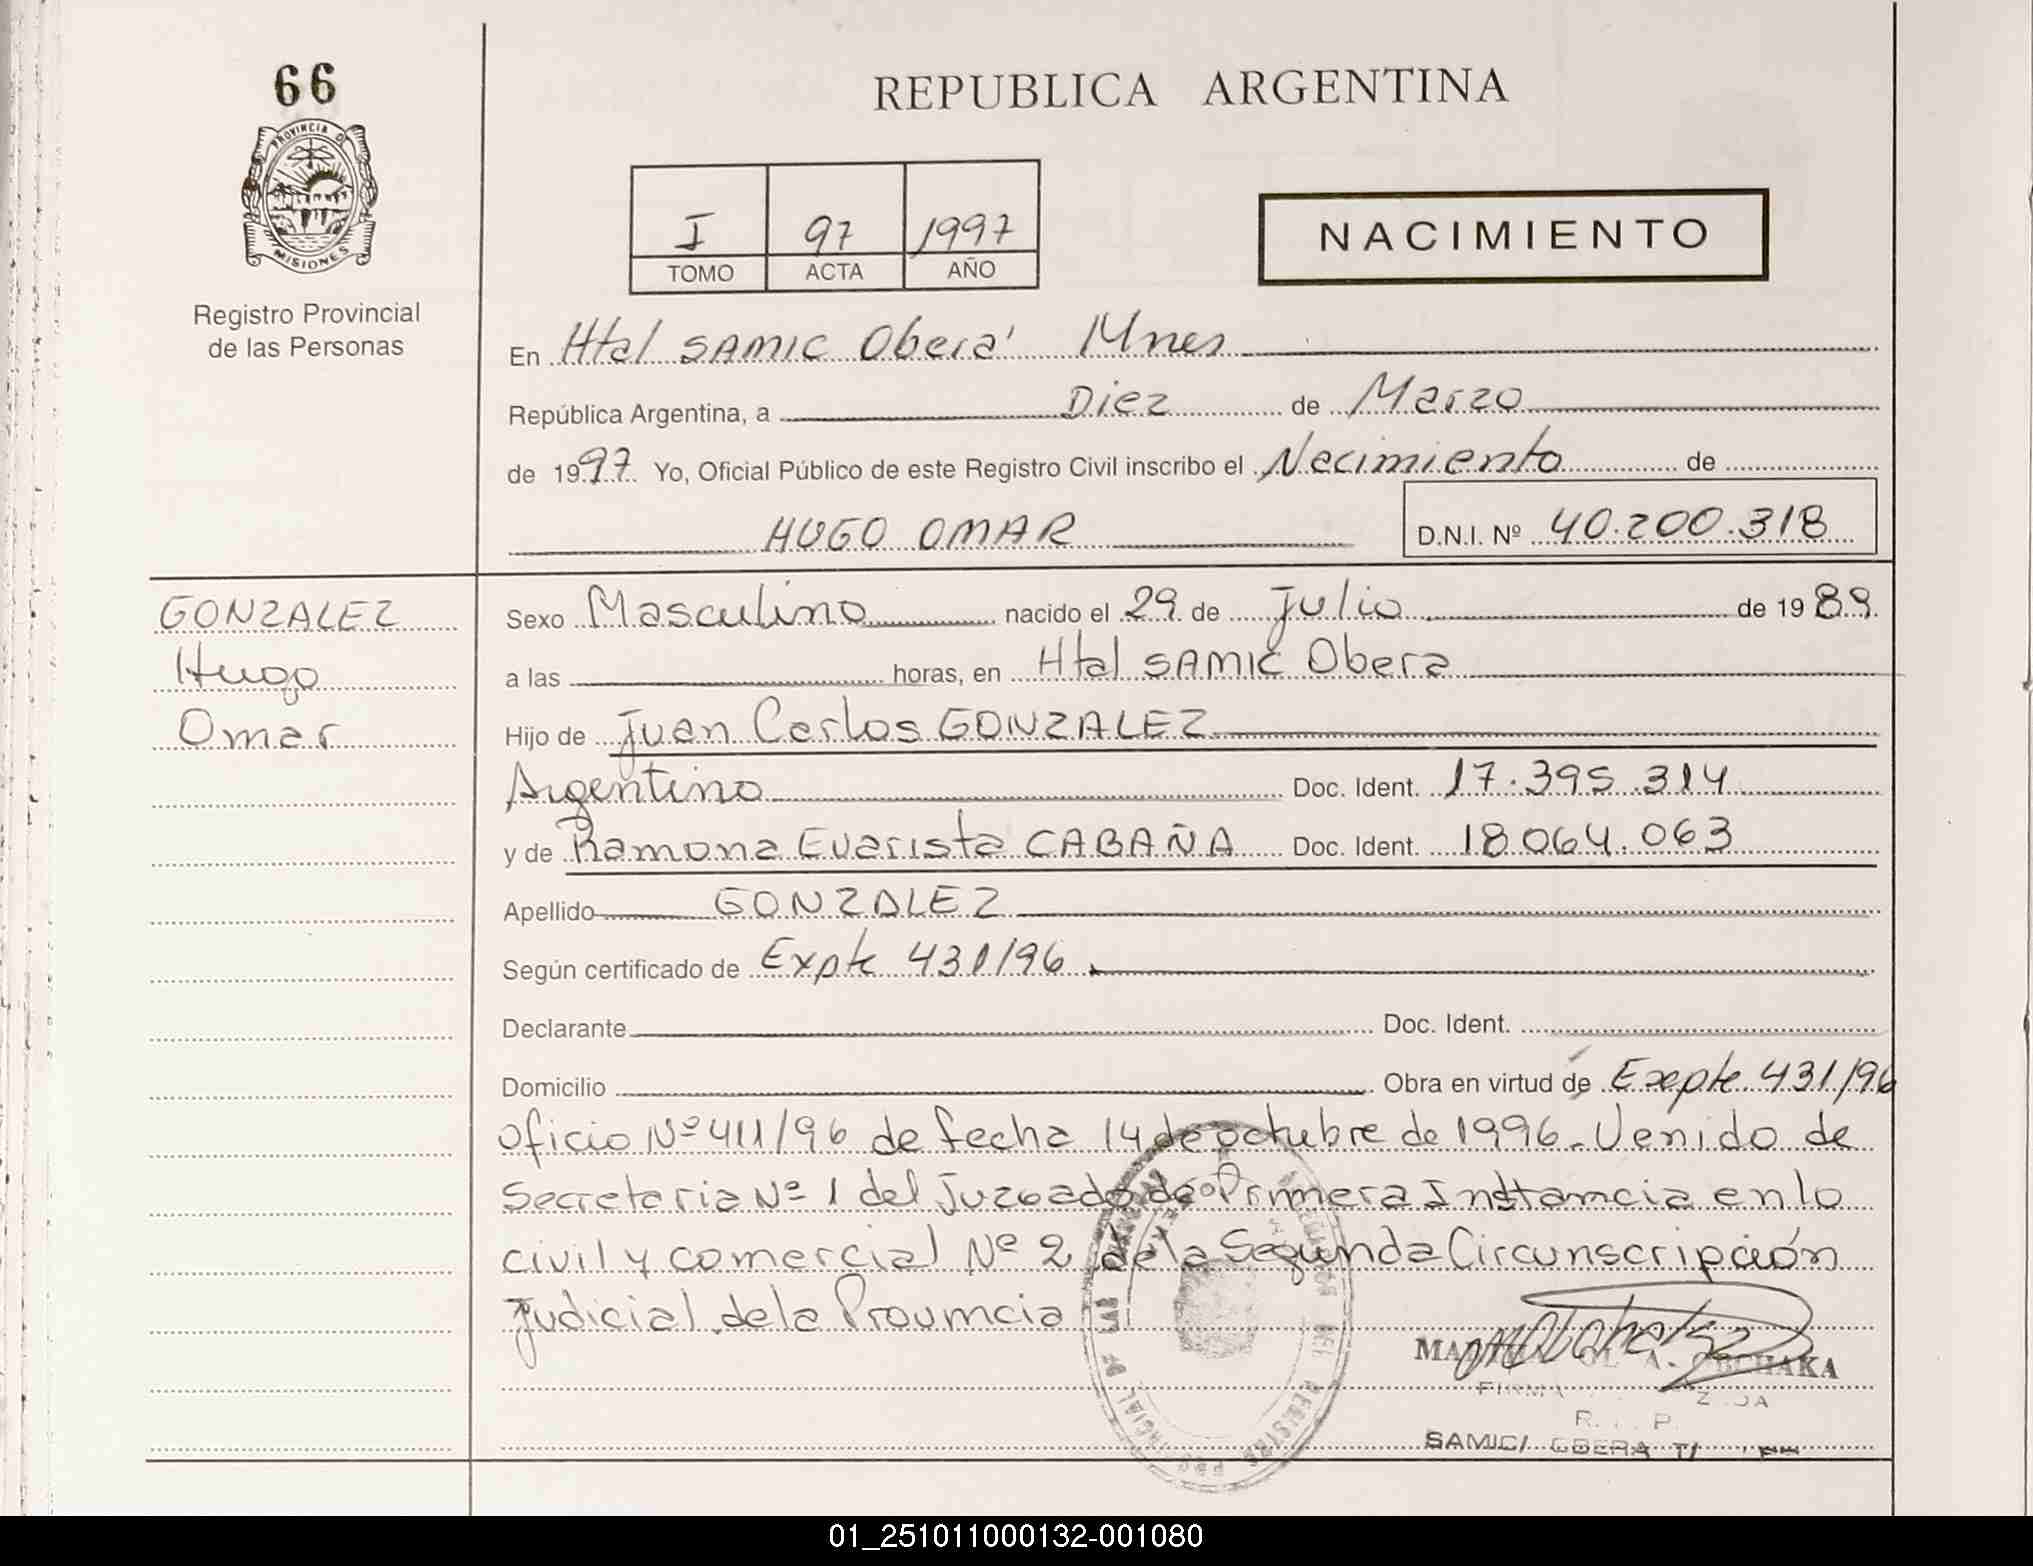 66
PROVINCIA D
MISIONES
Registro Provincial
de las Personas
REPUBLICA ARGENTINA
I 97 1997
TOMO ACTA AÑO
NACIMIENTO
En Htal SAMIC Oberá Mnes
República Argentina, a Diez de Marzo
de 1997 Yo, Oficial Público de este Registro Civil inscribo el Nacimiento de
HUGO OMAR D.N.I. Nº 40.200.318
GONZALEZ
Hugo
Omar
Sexo Masculino nacido el 29 de Julio de 1989
a las horas, en Htal SAMIC Obera
Hijo de Juan Carlos GONZALEZ
Argentino Doc. Ident. 17.395.314
y de Ramona Evarista CABAÑA Doc. Ident. 18064.063
Apellido GONZALEZ
Según certificado de Expte 431/96
Declarante Doc. Ident.
Domicilio Obra en virtud de Expte 431/96
Oficio Nº 411/96 de fecha 14 de octubre de 1996. Venido de
Secretaria Nº 1 del Juzgado de Primera Instancia en lo
civil y comercial Nº 2 de la Segunda Circunscripción
Judicial de la Provincia
SAMIC/ OBERA
01_251011000132-001080